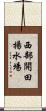 西部開田
揚水場